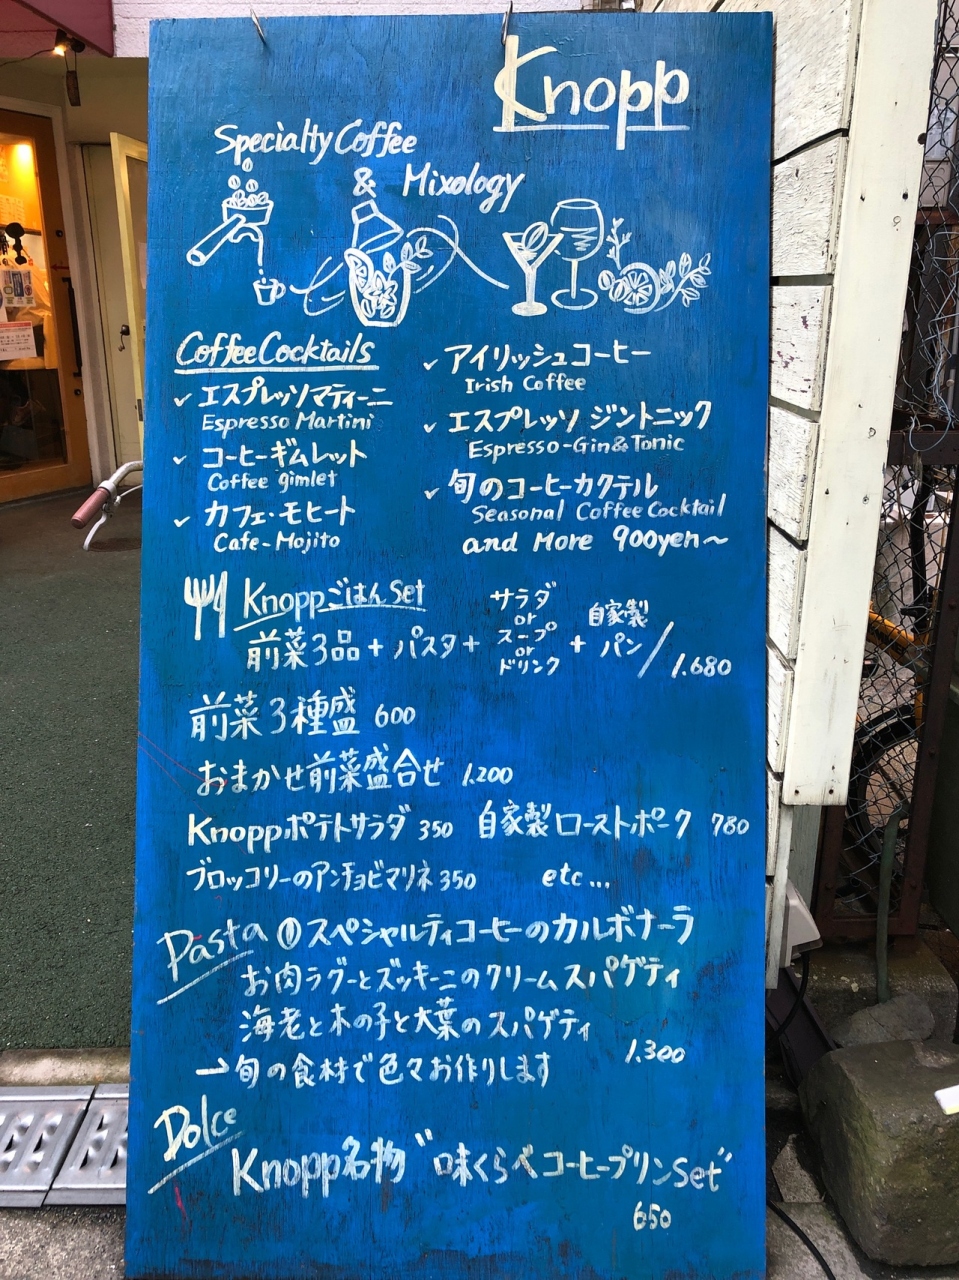 Knopp
Specialty Coffee
& Mixology
Coffee Cocktails
✓ エスプレッソマティーニ
Espresso Martini
✓ コーヒーギムレット
Coffee gimlet
✓ カフェ・モヒート
Cafe-Mojito
✓ アイリッシュコーヒー
Irish Coffee
✓ エスプレッソ ジントニック
Espresso-Gin&Tonic
✓ 旬のコーヒーカクテル
Seasonal Coffee Cocktail
and More 900yen〜
KnoppごはんSet
前菜3品+パスタ+サラダ or スープ or ドリンク+自家製パン/1.680
前菜3種盛 600
おまかせ前菜盛合せ 1.200
Knoppポテトサラダ 350 自家製ローストポーク 780
ブロッコリーのアンチョビマリネ 350 etc...
Pasta ①スペシャルティコーヒーのカルボナーラ
お肉ラグーとズッキーニのクリームスパゲティ
海老と木の子と大葉のスパゲティ
1.300
→旬の食材で色々お作りします
Dolce
Knopp名物"味くらべコーヒープリンSet"
650